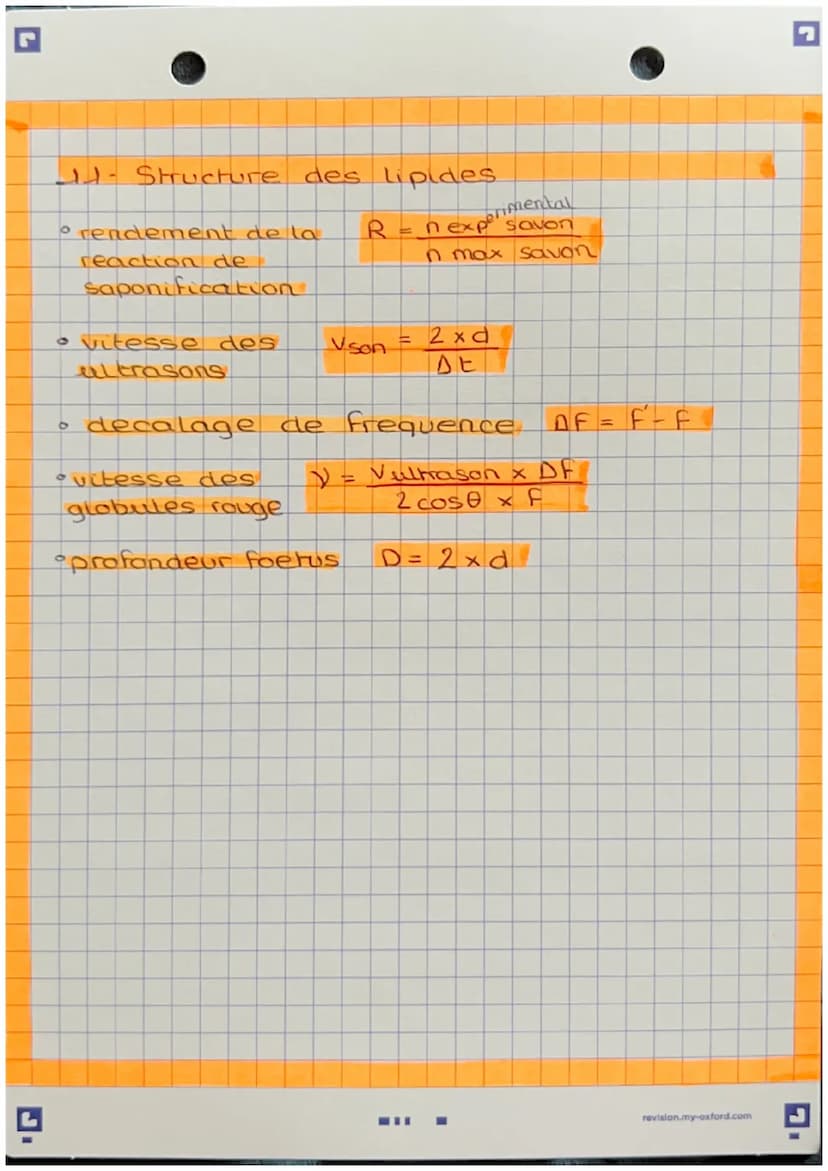 11- Structure des lipides
° rendement de la réaction de saponification R = n expérimental savon / n max savon
° vitesse des ultrasons Vson = 2 x d / Δt
° decalage de frequence ΔF = F' - F
° vitesse des globules rouge V = Vultrason x DF / 2 cosθ x F
° profondeur foetus D = 2 x d
revision.my-oxford.com